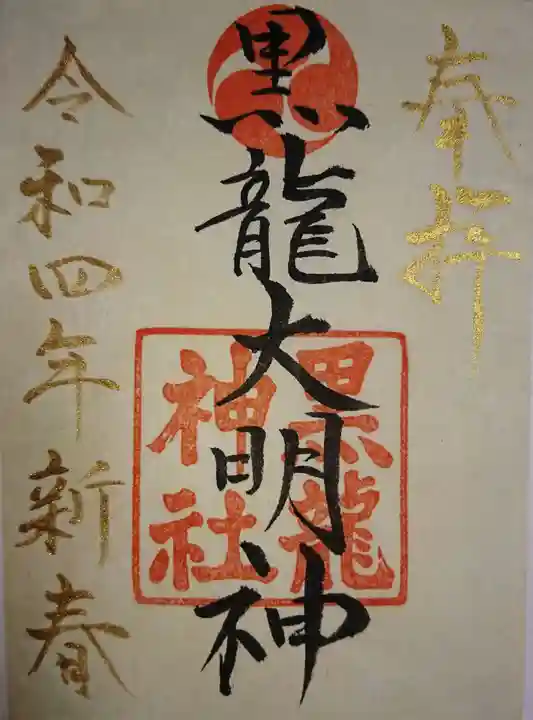 奉拝
黒龍大明神
黒龍
神社
令和四年新春